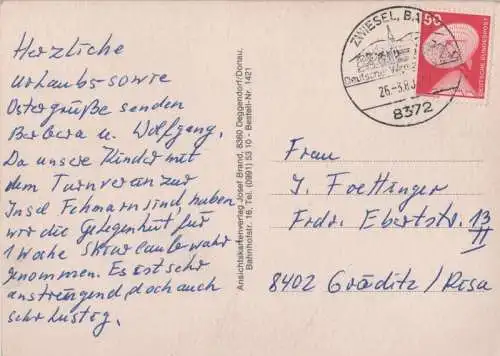 Herzliche
Urlaubs sowie
Ostergrüße senden
Barbara u. Wolfgang.
Da unsere Kinder mit
dem Turnverein zur
Insel Fehmarn sind, haben
wir die Gelegenheit für
1 Woche Skiurlaube wahr
genommen. Es ist sehr
anstrengend, doch auch
sehr lustig.
Ansichtskartenverlag Josef Brand, 8360 Deggendorf/Donau,
Bahnhofstr. 16, Tel. (0991) 53 10 - Bestell-Nr. 1421
ZWIESEL, B
Deutscher
26.-3.8
8372
50
DEUTSCHE BUNDESPOST
Frau
J. Foettinger
Frdr. Ebertstr. 13
II
8402 Gröditz / Riesa